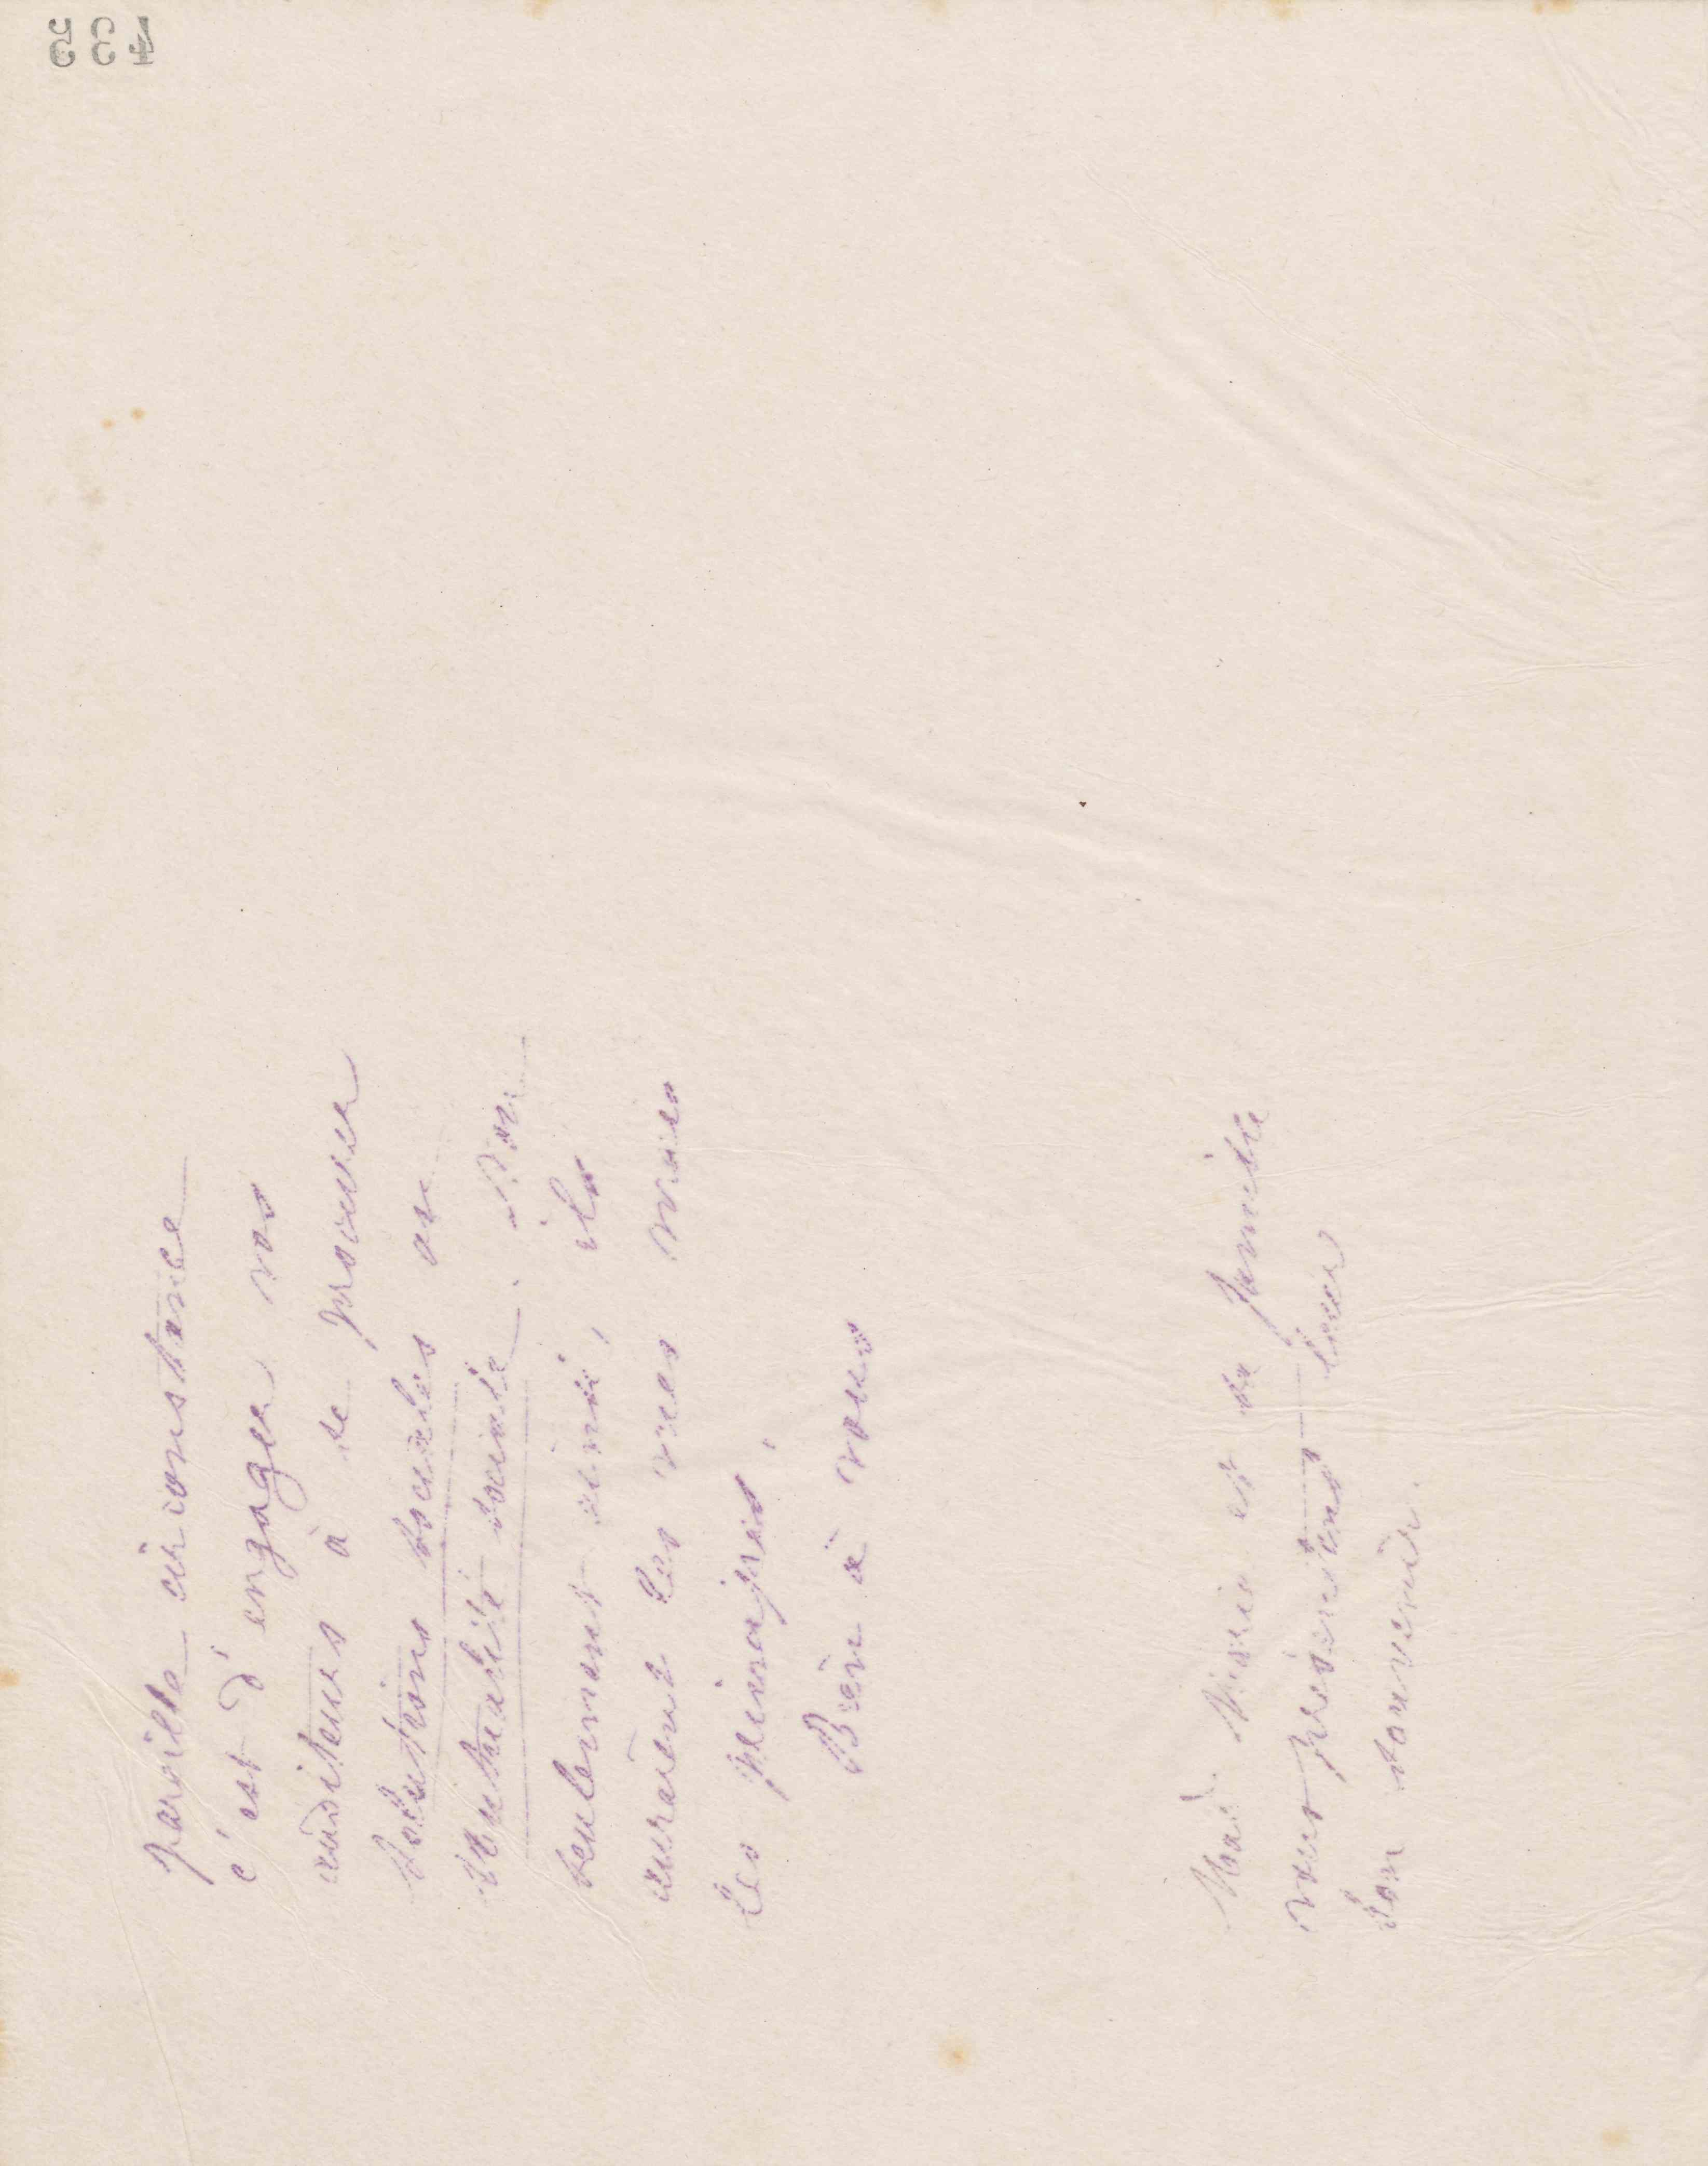 435
pareille circonstance
c'est d'engager vos
auditeurs à se procurer
Solutions sociales ou
Mutualité sociale. Non
seulement ainsi, ils
auraient les vues mais
les principes.
Bien à vous
Mad. Marie et sa famille
vous présentent leur
bon souvenir.